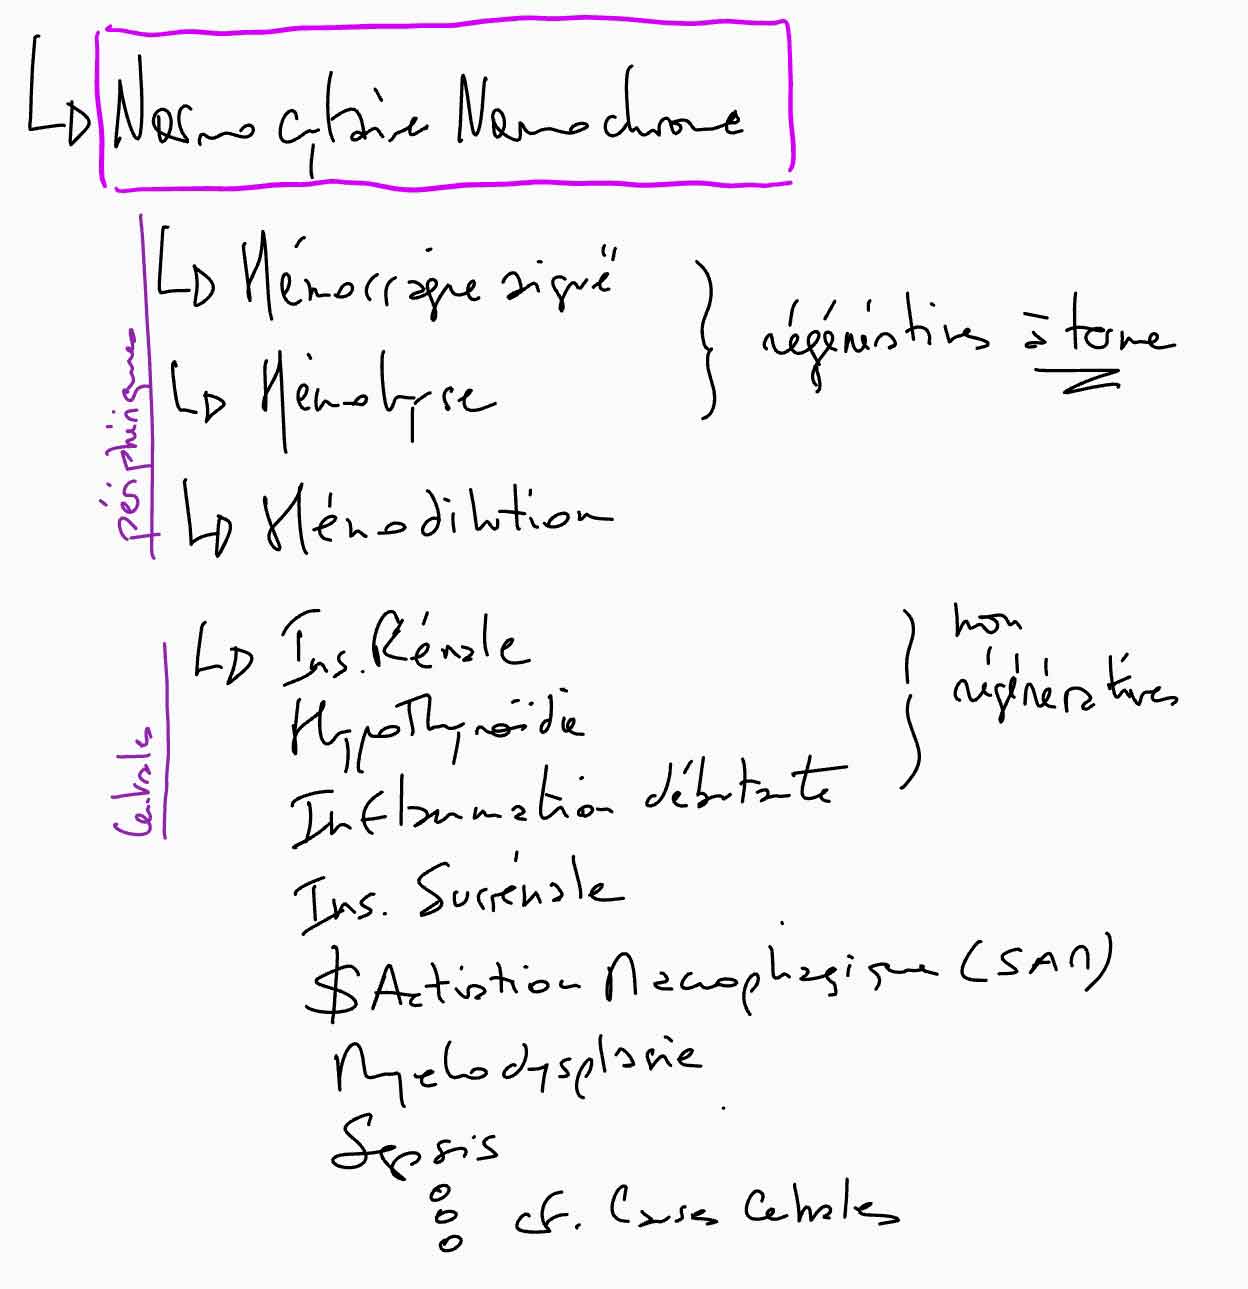 Normocytaire Normochrome
périphériques
Hémorragie aiguë
régénératives à terme
Hémolyse
Hémodilution
Centrales
Ins. Rénale
non
régénératives
Hypothyroïdie
Inflammation débutante
Ins. Surrénale
$ Activation Macrophagique (SAM)
Myelodysplasie
Sepsis
cf. Causes Centrales